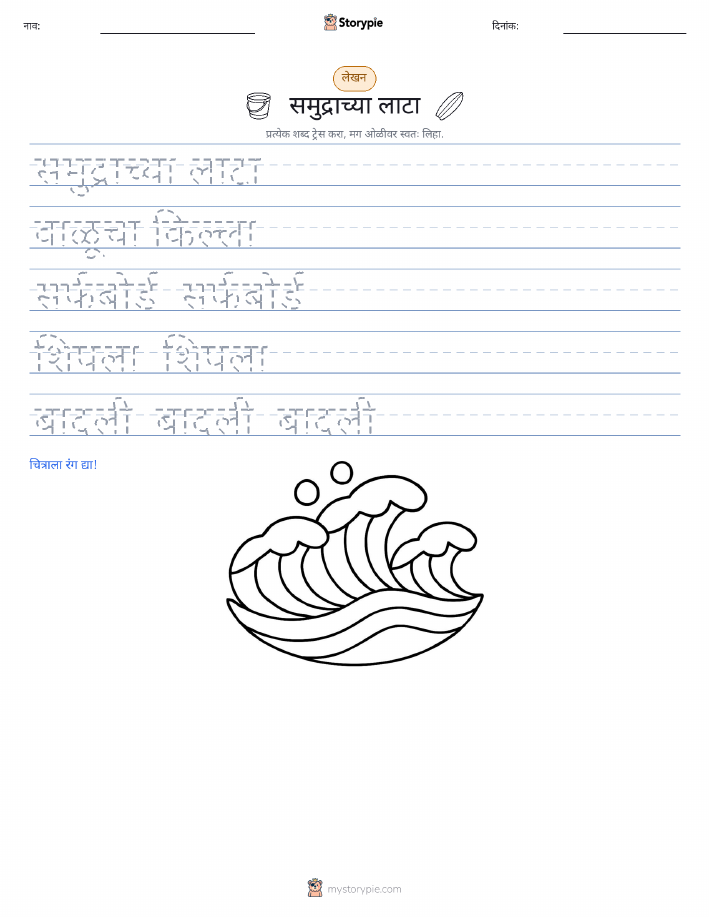 नाव:
Storypie
दिनांक:
लेखन
समुद्राच्या लाटा
प्रत्येक शब्द ट्रेस करा, मग ओळीवर स्वतः लिहा.
समुद्राच्या लाटा
वाळूचा किल्ला
सर्फबोर्ड सर्फबोर्ड
शिंपला शिंपला
बादली बादली बादली
चित्राला रंग द्या!
mystorypie.com